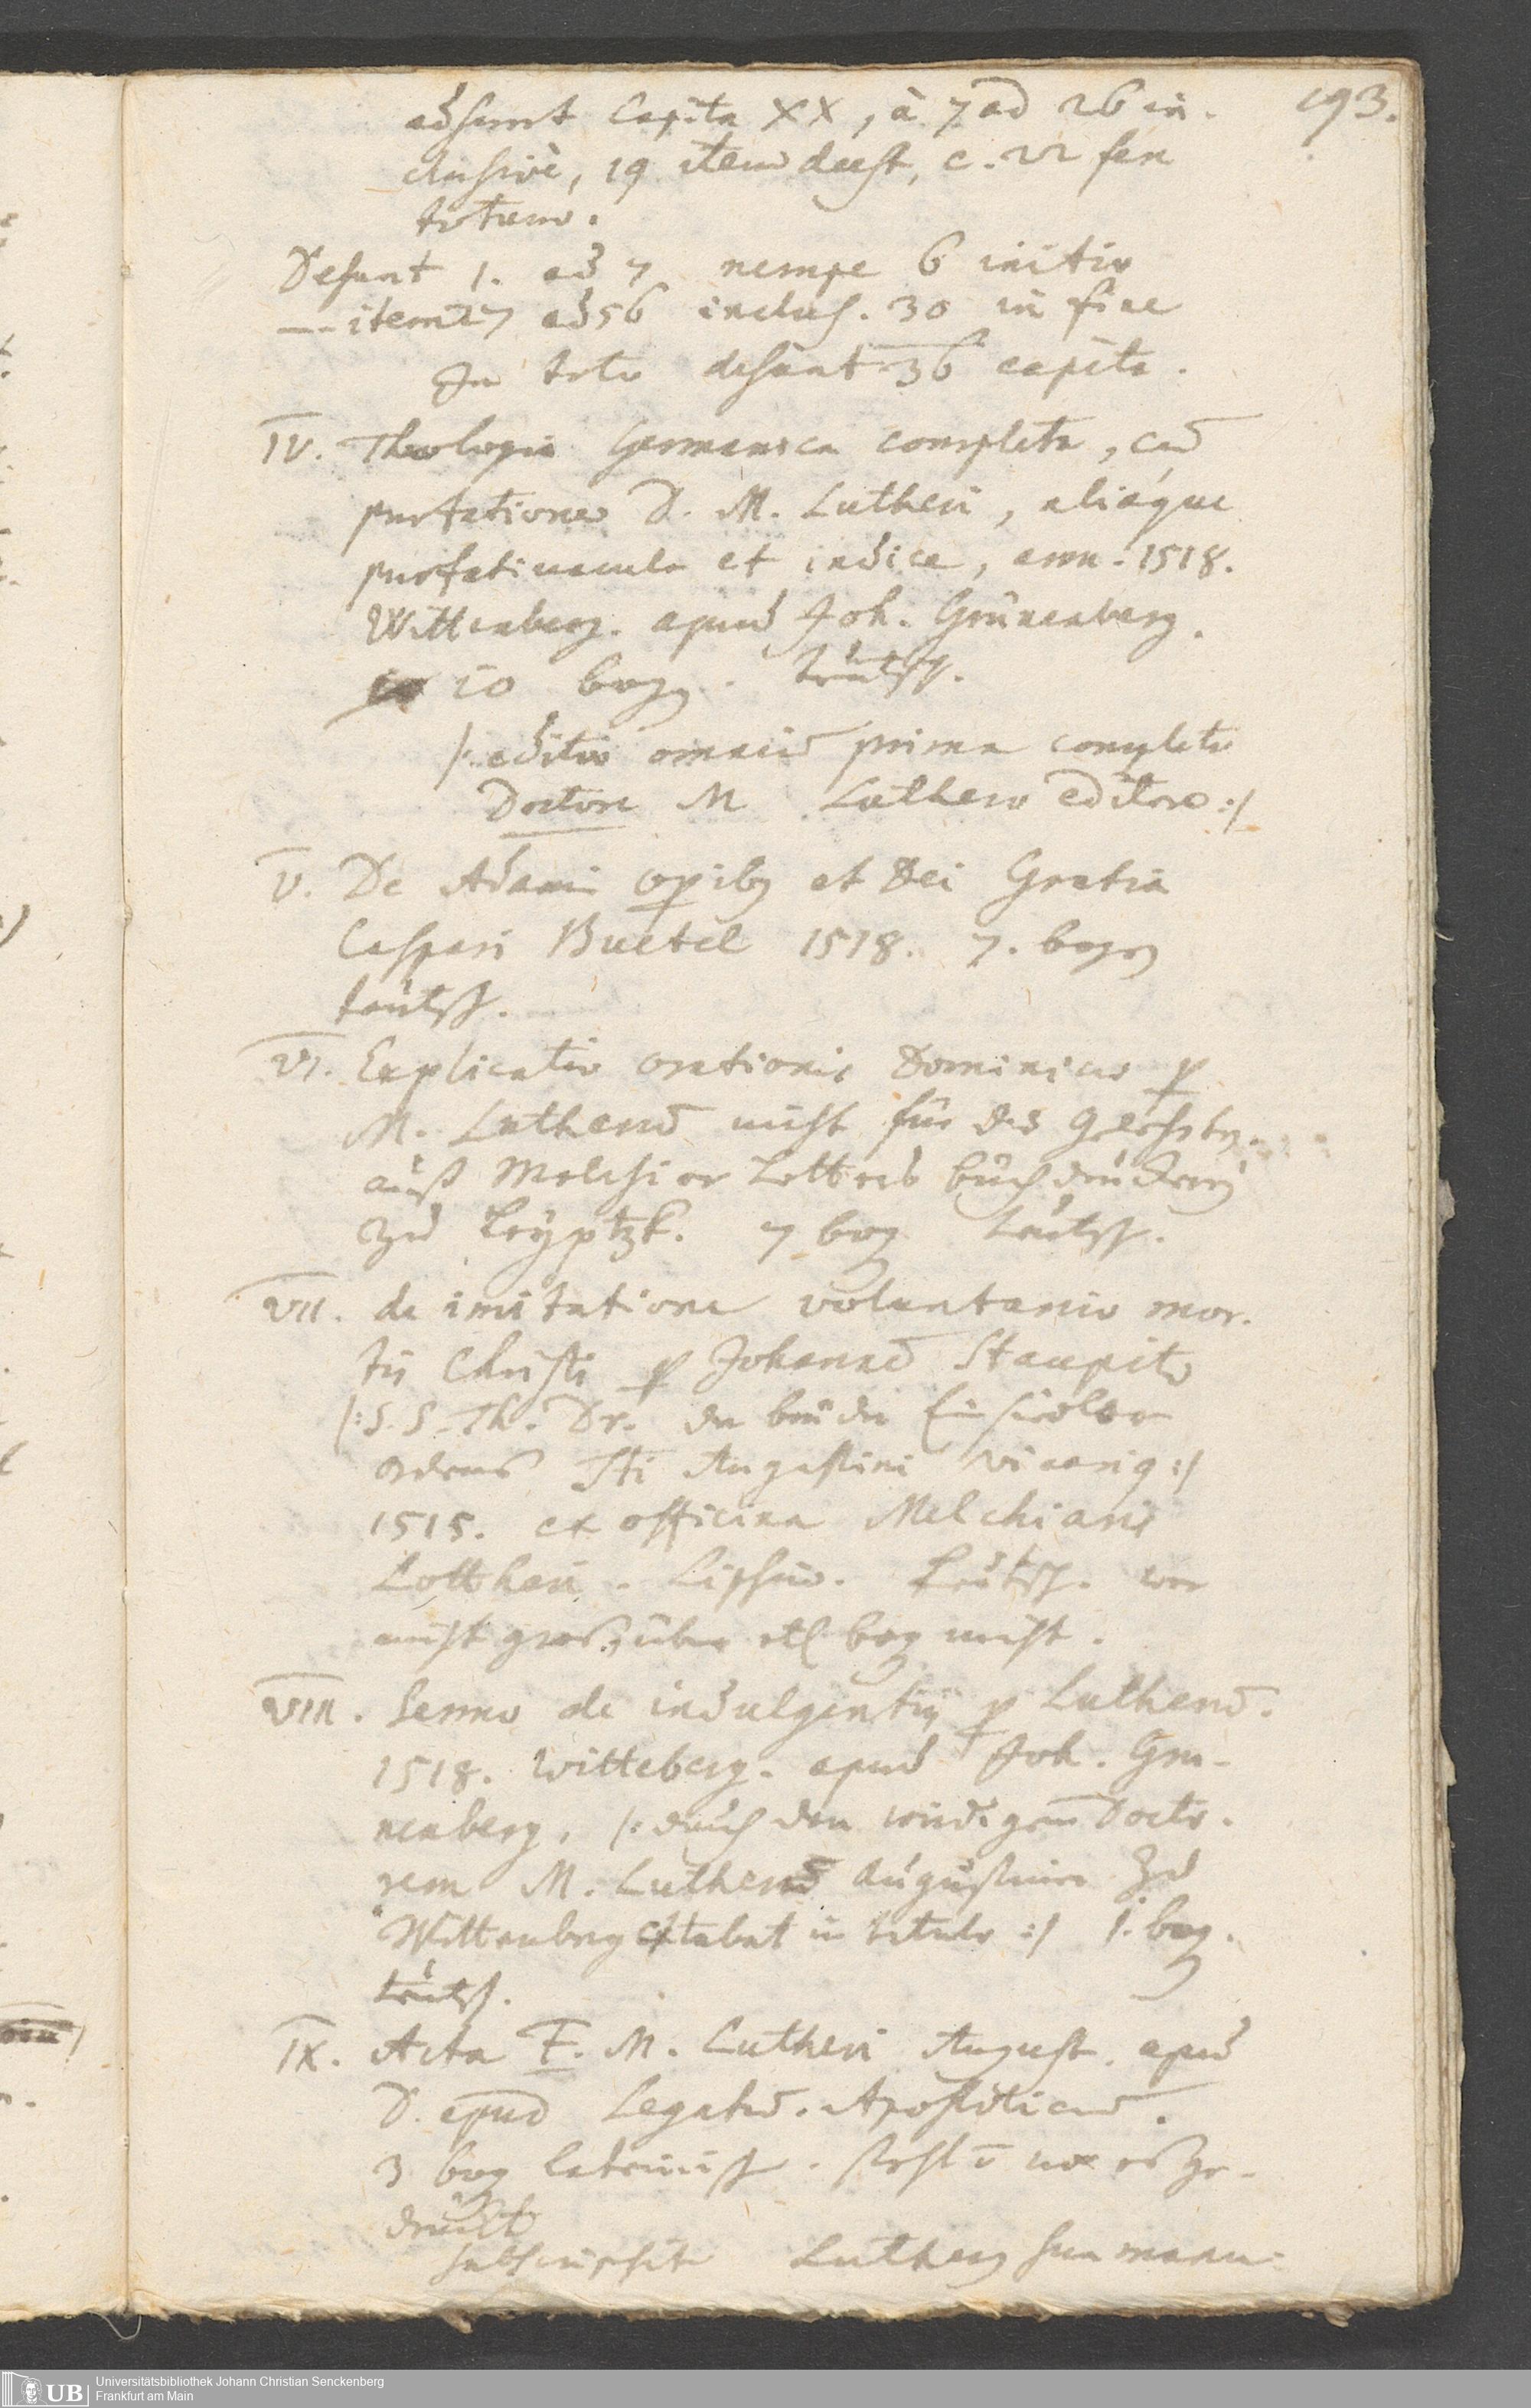 193.
adsunt Capita XX, à 7 ad 26 in-
clusivè, 19 item deest, c. 22 fere
totum.
Desunt 1. ad 7 nempe 6 initio
— item 27 ad 56 inclus. 30 in fine
In toto desunt 36 capita.
IV. Theologia Germanica completa, cū
praefatione D. M. Lutheri, aliaque
praefatiuncula et indice, ann. 1518.
Wittenberg. apud Joh. Grünenberg.
10 bog. teütsch.
/: editio omniū prima completa
Doctore M Luthero editore :/
V. De Adami operibꝫ et Dei Gratia
Caspari Buetel 1518. 7. bogen
teütsch.
VI. Explicatio orationis Dominicae ꝑ
M. Lutherū nicht für die gelehrten.
auß Melchior Lotters buchdruckerey
zu Leyptzk. 7 bog teütsch.
VII. de imitatione voluntariae mor-
tis Christi ꝑ Johannē Staupitz
/: S. S. Th. Dr. der brüder Einsiedler
ordens Sti Augustini vicariꝰ :/
1515. ex officina Melchioris
Lottheri. Lipsiae. Teütsch. war
nicht groß, über etl bog nicht.
VIII. Sermo de indulgentiis ꝑ Lutherū.
1518. Witteberg. apud Joh. Gru-
nenberg, /: durch den wirdigenn Docto-
rem M. Lutherū Augustiner zu
Wittenberg stabat in titulo :/ 1. bog.
teütsch.
IX. Acta F. M. Lutheri August. apud
D. apud Legatū. Apostolicū.
3 bog lateinisch. steht ū wo es ge-
druckt
subscripsit Lutherꝰ sua manu
Universitätsbibliothek Johann Christian Senckenberg
UB
Frankfurt am Main